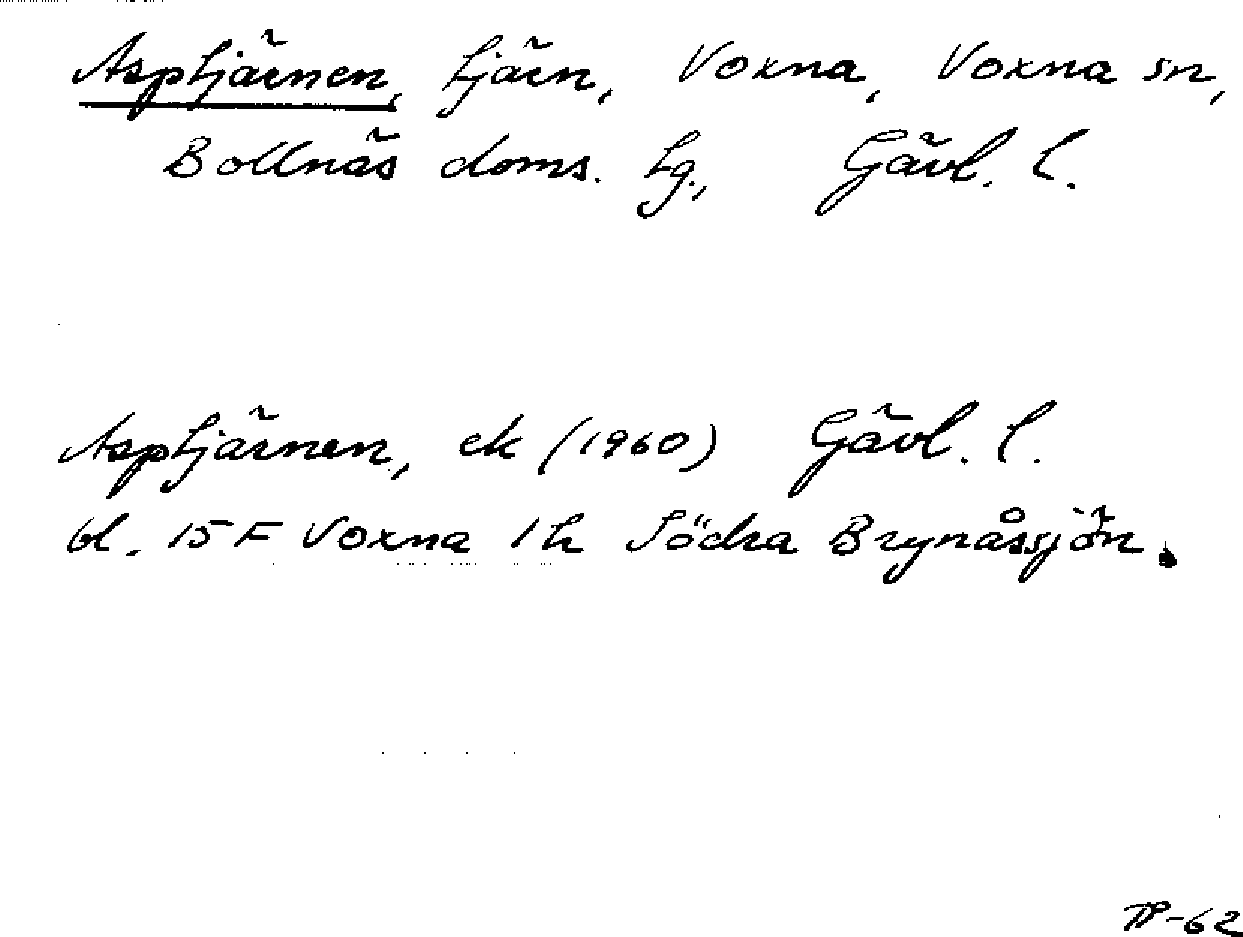 Asptjärnen, tjärn, Voxna, Voxna sn,
Bollnäs doms. tg., Gävl. l.
Asptjärnen, ek (1960) Gävl. l.
bl. 15 F Voxna 1 h Södra Brynåssjön.
TP-62